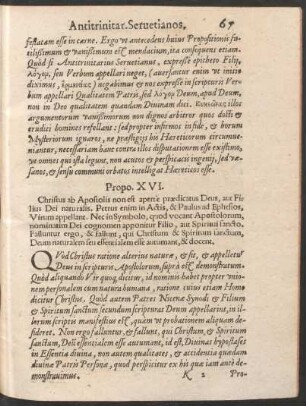 Antitrinitar. Seruetianos. 67
festatam esse in carne. Ergo vt antecedens huius Propositionis fu-
tilissimum & vanissimum est mendacium, ita consequens etiam.
Quòd si Antitrinitarius Seruetianus, expressè epitheto Filij,
λογου, seu Verbum appellari neget, (auersantur enim vt initio
diximus, ignotius) iugabimus & nos expressè in scripturis Ver-
bum appellari Qualitatem Patris, sed λογον Deum, apud Deum,
non in Deo qualitatem quandam Diuinam dici. illos
argumentorum vanissimorum non dignos arbitror quos docti &
eruditi homines refellant; sed propter infirmos in fide, & horum
Mysteriorum ignaros, ne præstigijs his Hæreticorum circumue-
niantur, necessariam hanc contra illos disputationem esse existimo,
vt omnes qui ista legunt, non acutos & perspicacis ingenij, sed væ-
sanos, & sensu communi orbatos intelligat Hæreticos esse.
Propo. XVI.
Christus ab Apostolis non est apertè prædicatus Deus, aut Fi-
lius Dei naturalis. Petrus enim in Actis, & Paulus ad Ephesios,
Virum appellant. Nec in Symbolo, quod vocant Apostolorum,
nominatim Dei cognomen apponitur Filio, aut Spiritui sancto.
Falluntur ergo, & fallunt, qui Christum & Spiritum sanctum,
Deum naturalem seu essentialem esse autumant, & docent.
QVod Christus ratione alterius naturæ, & sit, & appelletur
Deus in scripturis Apostolicis, suprà est demonstratum.
Quòd aliquando Vir quoque dicitur, id nominis habet propter vnio-
nem personalem cum natura humana, ratione cuius etiam Homo
dicitur Christus. Quòd autem Patres Nicænæ Synodi & Filium
& Spiritum sanctum secundum scripturas Deum appellarint, in il-
lorum scriptis manifestius est, quàm vt probationem aliquam de-
sideret. Non ergo falluntur, & fallunt, qui Christum, & Spiritum
sanctum, Deum essentialem esse autumant, id est, Diuinas hypostases
in Essentia diuina, non autem qualitates, & accidentia quædam
diuina in Patris Personæ, quod perspicitur ex his quæ iam antè de-
monstrauimus.
K 2 Pro-